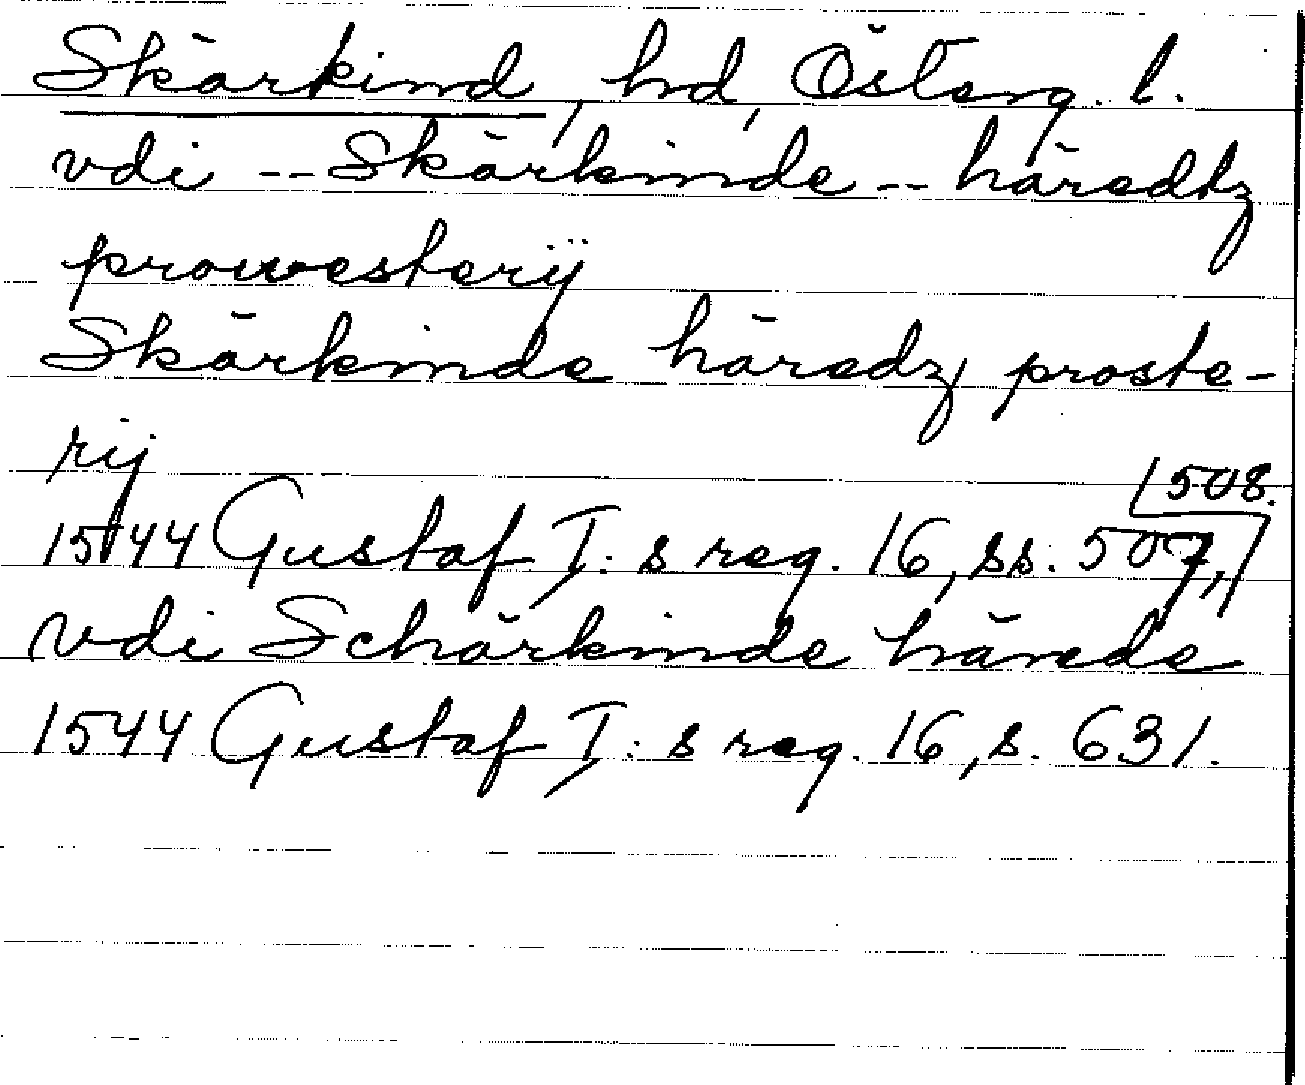 Skärkind, hd, Österg. l.
vdi -- Skärkinde -- häredtz
prowesterÿ
Skärkinde häredz proste-
rij
1544 Gustaf I:s reg. 16, ss. 507, 508.
vdi Schärkinde härede
1544 Gustaf I:s reg. 16, s. 631.